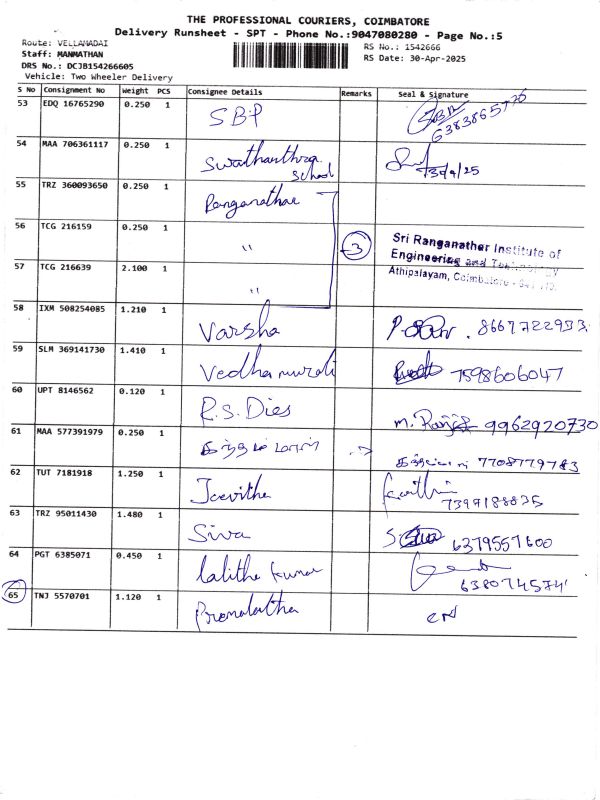 THE PROFESSIONAL COURIERS, COIMBATORE
Delivery Runsheet - SPT - Phone No.:9047080280 - Page No.:5
Route: VELLAMADAI
Staff: MANMATHAN
DRS No.: DCJB154266605
Vehicle: Two Wheeler Delivery
RS No.: 1542666
RS Date: 30-Apr-2025
S No Consignment No Weight PCS Consignee Details Remarks Seal & Signature
53 EDQ 16765290 0.250 1 SBP 6383865725
54 MAA 706361117 0.250 1 Swathanthra School 30/4/25
55 TRZ 360093650 0.250 1 Ranganathar
56 TCG 216159 0.250 1 " 3
Sri Ranganathar Institute of
Engineering and Technology
Athipalayam, Coimbatore
57 TCG 216639 2.100 1 "
58 IXM 508254085 1.210 1 Varsha 8667722933
59 SLM 369141730 1.410 1 Vedhamurali 7598606047
60 UPT 8146562 0.120 1 R.S. Dies m. Ranjit 9962920730
61 MAA 577391979 0.250 1 7708779783
62 TUT 7181918 1.250 1 Jeevitha 7397188835
63 TRZ 95011430 1.480 1 Siva 6379557600
64 PGT 6385071 0.450 1 Lalitha Kumar 638074574
65 TNJ 5570701 1.120 1 Premalatha